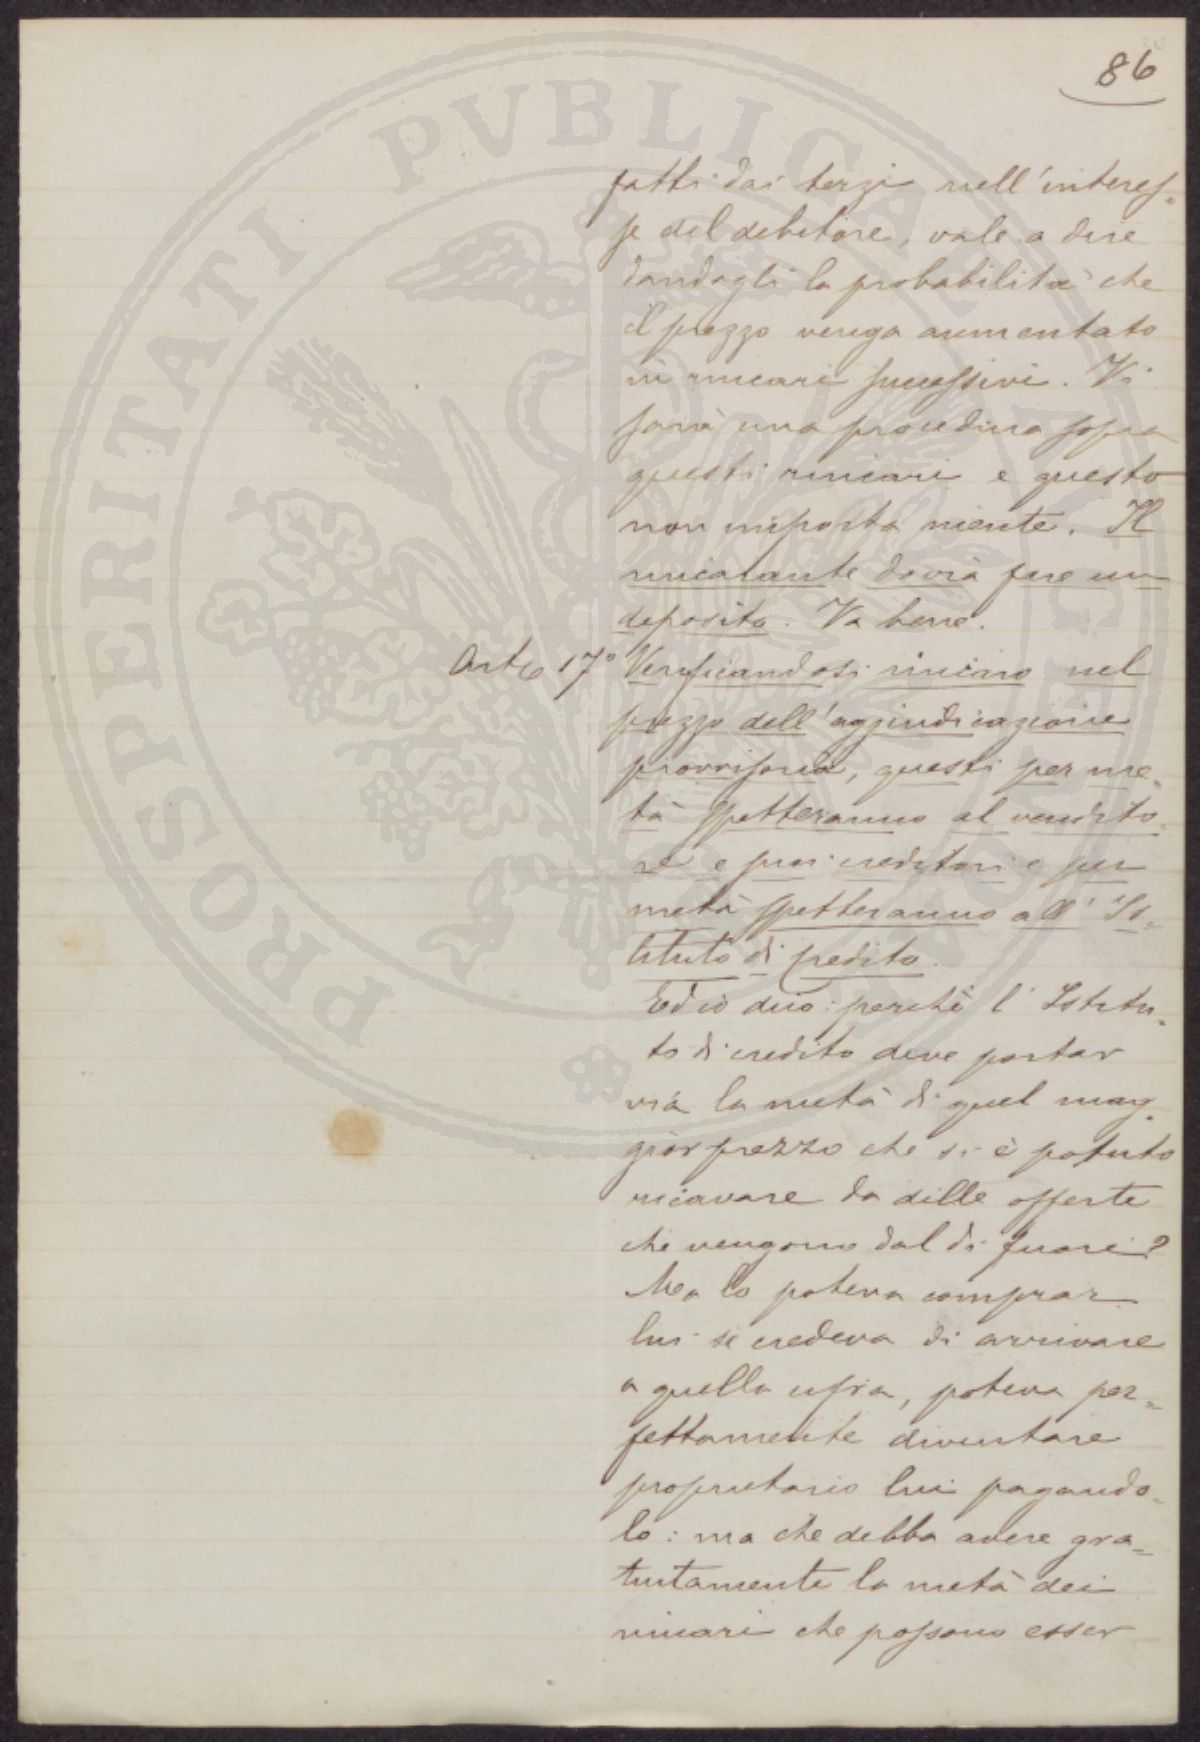 86
fatti dai terzi nell'interes=
se del debitore, vale a dire
dandogli la probabilità che
il prezzo venga aumentato
in rincari successivi. Vi
sarà una procedura sopra
questi rincari e questo
non importa niente. Il
rincarante dovrà fare un
deposito. Va bene.
Art.o 17° Verificandosi rincaro nel
prezzo dell'aggiudicazione
provvisoria, questi per me=
tà spetteranno al vendito=
re e suoi creditori e per
metà spetteranno all'Is=
tituto di credito.
Ed io dico: perchè l'Istitu=
to di credito deve portar
via la metà di quel mag=
gior prezzo che si è potuto
ricavare da delle offerte
che vengono dal di fuori?
Ma lo poteva comprar
lui se credeva di arrivare
a quella cifra, poteva per=
fettamente diventare
proprietario lui pagando=
lo: ma che debba avere gra=
tuitamente la metà dei
rincari che possono esser
PROSPERITATI PVBLICAE